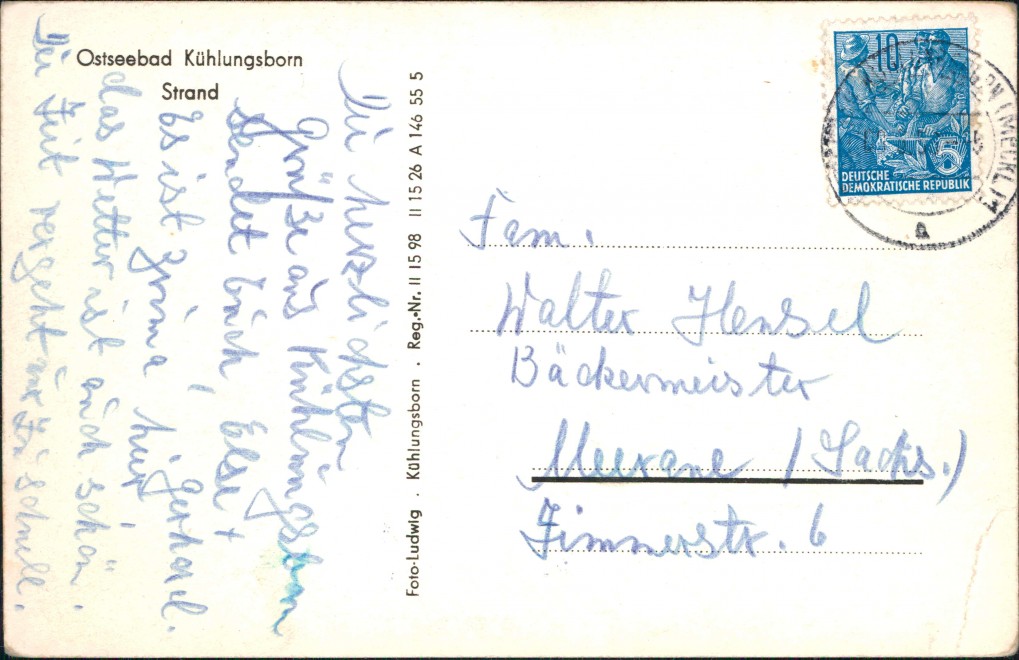 Ostseebad Kühlungsborn
Strand
Die herzlichsten
Grüße aus Kühlungsborn
sendet Euch Else +
Gerhard.
Es ist prima hier,
das Wetter ist auch schön.
Die Zeit vergeht nur zu schnell.
Foto-Ludwig . Kühlungsborn . Reg.-Nr. II 15 98 II 15 26 A 146 55 5
10
5
DEUTSCHE
DEMOKRATISCHE REPUBLIK
(MECKL)
a
Fam.
Walter Hensel
Bäckermeister
Meerane / (Sachs.)
Zimmerstr. 6